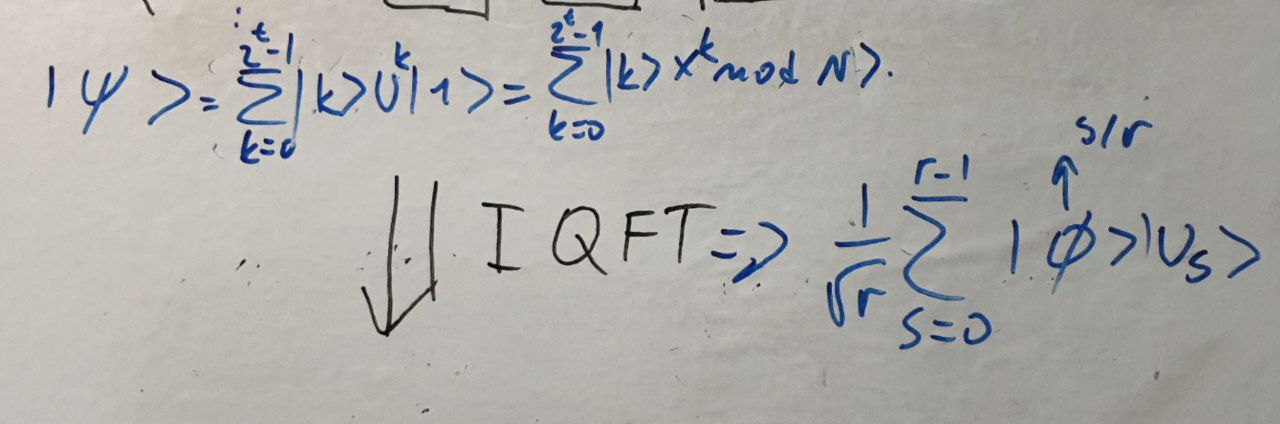 |ψ> = \sum_{k=0}^{2^t-1} |k> U^k |1> = \sum_{k=0}^{2^t-1} |k> x^k mod N>.
s/r
IQFT => \frac{1}{\sqrt{r}} \sum_{s=0}^{r-1} |ϕ>|U_s>